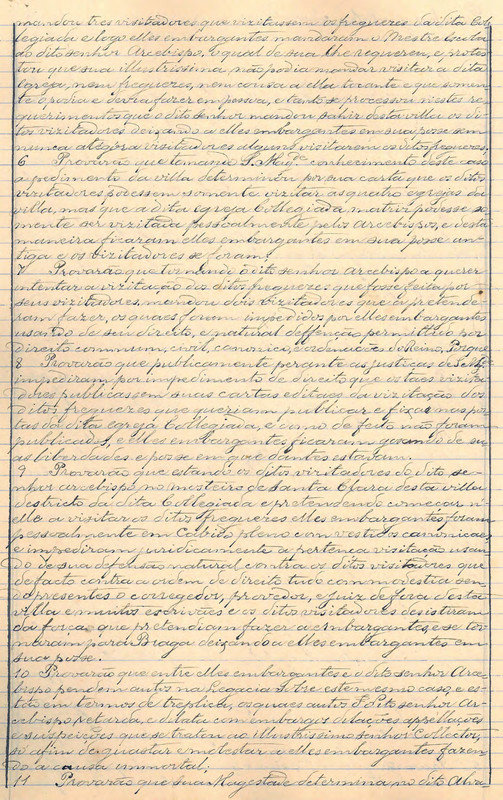 mandou tres visitadores que vizitassem os freguezes da dita Col-
legiada e logo elles embargantes mandaram o Mestre Escola
ao dito senhor Arcebispo, o qual de sua lhe requereu, e protes-
tou que sua illustrissima não podia mandar visitar a dita
Egreja, nem freguezes, nem cousa a ella tocante e que somen-
te o podia e devia fazer em pessoa, e tanto se processou n'estes re-
querimentos que o dito senhor mandou sahir desta villa os di-
tos vizitadores deixando a elles embargantes em sua posse sem
nunca até gora visitadores alguns visitarem os ditos freguezes.
6 Provarão que tomando S. Mag.de conhecimento deste caso
a pedimento da villa determinou por sua carta que os ditos
vizitadores podessem somente vizitar as quatro egrejas da
villa, mas que a dita egreja Collegiada, matriz podesse so-
mente ser vizitada pessoalmente pelos Arcebispos, e desta
maneira ficaram elles embargantes em sua posse an-
tiga e os vizitadores se foram.
7 Provarão que tornando o dito senhor Arcebispo a querer
intentar a vizitação dos ditos freguezes que fosse feita por
seus vizitadores, mandou dois vizitadores que o pretende-
ram fazer, os quaes foram impedidos por elles embargantes
usando de seu direito, e natural deffenção, permittido por
direito commum, civil, canonico, e ordenações do Reino, Porque
8 Provarão que publicamente perante as justiças de S. Mg.e
impediram por impedimento de direito que os taes vizita-
dores publicassem suas cartas editaes da vizitação dos
ditos freguezes que queriam publicar e fixar nas por-
tas da dita egreja Collegiada, e como de feito não foram
publicados, e elles embargantes ficaram gosando de su-
as liberdades e posse em que d'antes estavam.
9 Provarão que estando os ditos vizitadores do dito se-
nhor arcebispo, no mosteiro de Santa Clara desta villa
destricto da dita Collegiada e pretendendo começar n'-
elle a visitar os ditos freguezes elles embargantes foram
pessoalmente em Cabido pleno com vestidos canonicaes,
e impediram juridicamente a pertença visitação usan-
do de sua defensão natural contra os ditos visitadores que
de facto contra a ordem de direito tudo com modestia sen-
do presentes o corregedor, provedor, e juiz de fora desta
villa e muitos escrivães e os ditos visitadores desistiram
da força que pretendiam fazer a embargantes, e se tor-
naram para Braga deixando a elles embargantes em
sua posse.
10 Provarão que entre elles embargantes e o dito senhor Arce-
bispo pendem autos na Legacia sobre este mesmo caso, e es-
tão em termos de treplica, os quaes autos o dito senhor Ar-
cebispo retarda, e dilata com embargos dilações appellações
e suspeições que se tratam ao Illustrissimo senhor Collector,
so afim de gastar e molestar a elles embargantes fazen-
do a causa immortal;
11 Provarão que sua Magestade determina no dito Alva-